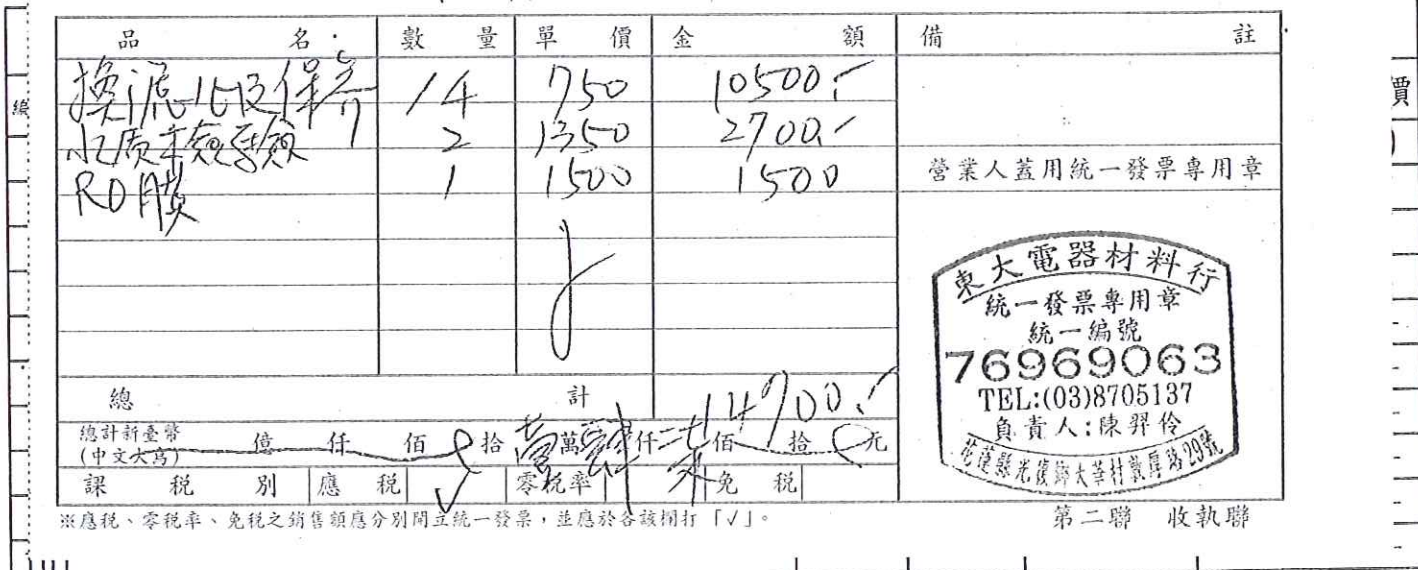 品 名 數 量 單 價 金 額 備 註
換濾心及保養 14 750 10500.-
水质主檢驗 2 1350 2700.-
RO膜 1 1500 1500
營業人蓋用統一發票專用章
總 計 14700.-
總計新臺幣
(中文大寫) 億 仟 佰 拾 壹萬肆仟柒佰 拾 元
課 稅 別 應 稅 ✓ 零稅率 免 稅
※應稅、零稅率、免稅之銷售額應分別開立統一發票，並應於各該欄打「√」。
東大電器材料行
統一發票專用章
統一編號
76969063
TEL:(03)8705137
負責人:陳羿伶
花蓮縣光復鄉大華村敦厚路29號
第二聯 收執聯
編
價